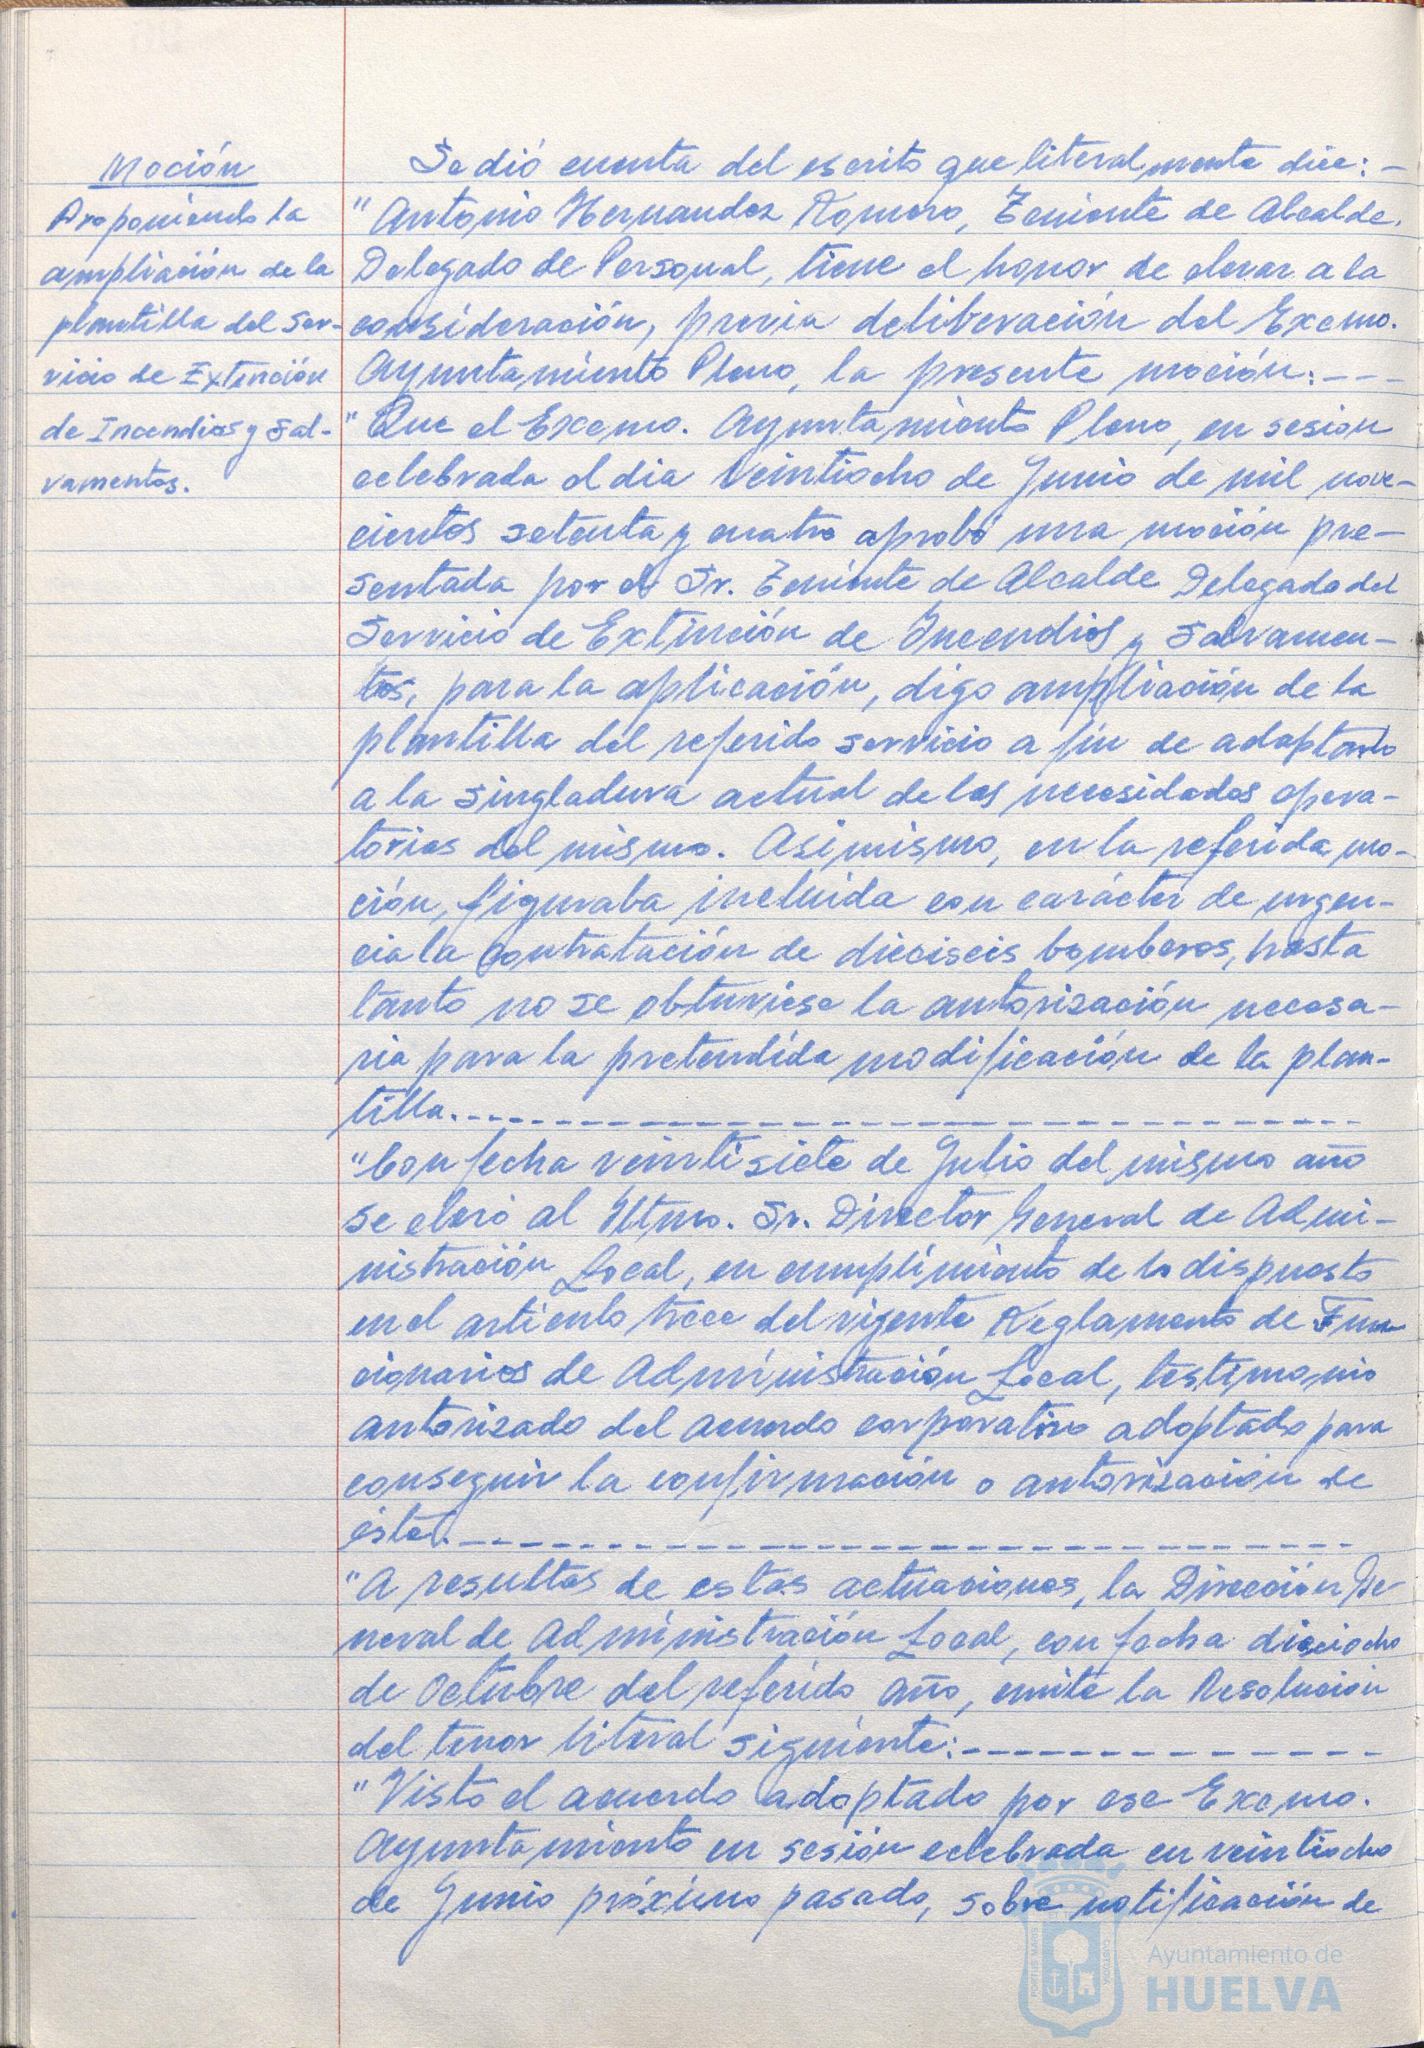 Moción
Proponiendo la
ampliación de la
plantilla del Ser-
vicio de Extinción
de Incendios y Sal-
vamentos.
Se dió cuenta del escrito que literalmente dice: -
"Antonio Hernandez Romero, Teniente de Alcalde,
Delegado de Personal, tiene el honor de elevar a la
consideración, previa deliberación del Excmo.
Ayuntamiento Pleno, la presente moción: ---
"Que el Excmo. Ayuntamiento Pleno, en sesión
celebrada el dia veintiocho de Junio de mil nove-
cientos setenta y cuatro aprobó una moción pre-
sentada por el Sr. Teniente de Alcalde Delegado del
Servicio de Extinción de Incendios y Salvamen-
tos, para la aplicación, digo ampliación de la
plantilla del referido servicio a fin de adaptarlo
a la singladura actual de las necesidades opera-
torias del mismo. Asimismo, en la referida mo-
ción, figuraba incluída con carácter de urgen-
cia la contratación de dieciseis bomberos, hasta
tanto no se obtuviese la autorización necesa-
ria para la pretendida modificación de la plan-
tilla. ---
"Con fecha veintisiete de Julio del mismo año
se elevó al Iltmo. Sr. Director General de Admi-
nistración Local, en cumplimiento de lo dispuesto
en el articulo trece del vigente Reglamento de Fun-
cionarios de Administración Local, testimonio
autorizado del acuerdo corporativo adoptado para
conseguir la confirmación o autorización de
éste. ---
"A resultas de estas actuaciones, la Dirección Ge-
neral de Administración Local, con fecha dieciocho
de Octubre del referido año, emite la Resolución
del tenor literal siguiente: ---
"Visto el acuerdo adoptado por ese Excmo.
Ayuntamiento en sesión celebrada en veintiocho
de Junio próximo pasado, sobre notificación de
Ayuntamiento de
HUELVA